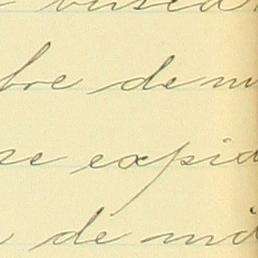 bre de m
se expid
de má